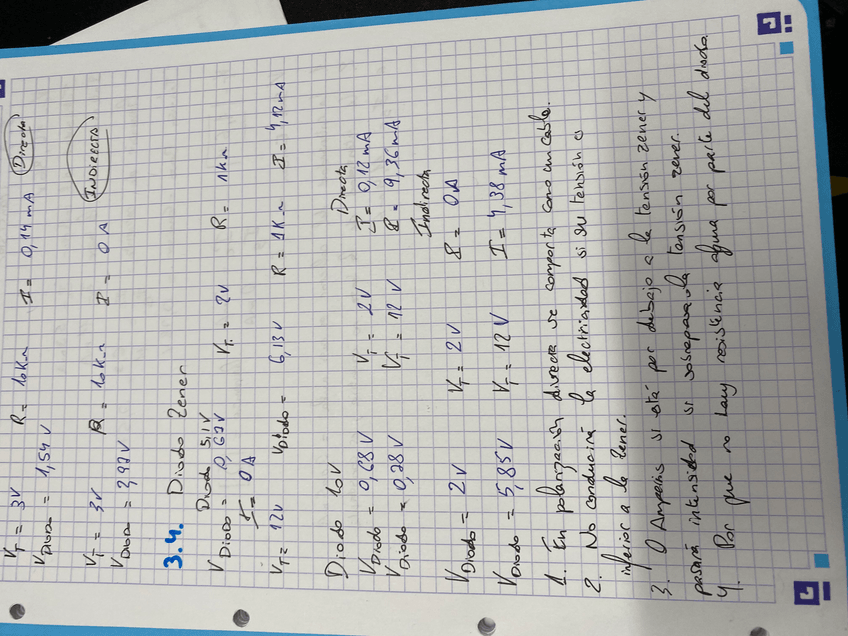 V_T = 3V R = 10KΩ I = 0,14 mA Directa
V_Diodo = 1,54V
V_T = 3V R = 10KΩ I = 0 A INDIRECTA
V_Diodo = 2,97V
3.4. Diodo Zener
Diodo 5,1V
V_Diodo = 0,67V V_T = 2V R = 1KΩ
I = 0 A
V_T = 12V V_Diodo = 6,13V R = 1KΩ I = 4,12mA
Diodo 10V Directa
V_Diodo = 0,68V V_T = 2V I = 0,12 mA
V_Diodo = 0,78V V_T = 12V I = 9,36 mA
Indirecta
V_Diodo = 2V V_T = 2V I = 0A
V_Diodo = 5,85V V_T = 12V I = 4,38 mA
1. En polarización directa se comporta como un cable.
2. No conducirá la electricidad si su tensión es
inferior a la Zener.
3. 0 Amperios si está por debajo a la tensión zener y
pasará intensidad si sobrepasa la tensión zener.
4. Por que no hay resistencia alguna por parte del diodo.